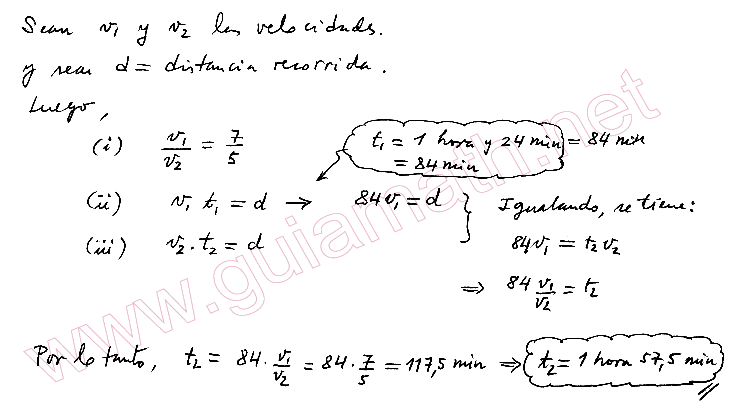 Sean v₁ y v₂ las velocidades.
y sea d = distancia recorrida.
Luego,
(i) v₁/v₂ = 7/5
t₁ = 1 hora y 24 min = 84 min
= 84 min
(ii) v₁ t₁ = d → 84v₁ = d
(iii) v₂ · t₂ = d
Igualando, se tiene:
84v₁ = t₂ v₂
⇒ 84 v₁/v₂ = t₂
Por lo tanto, t₂ = 84 · v₁/v₂ = 84 · 7/5 = 117,5 min ⇒ t₂ = 1 hora 57,5 min
www.guiamath.net